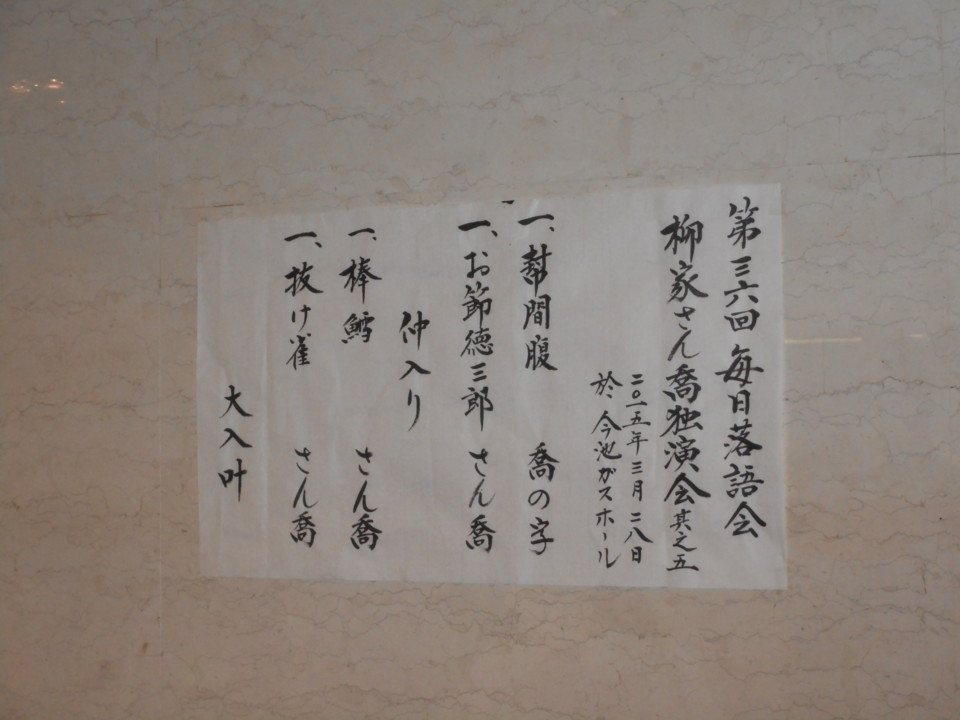 第三六回 毎日落語会
柳家さん喬独演会其之五
二〇一五年三月二八日
於 今池ガスホール
一、幇間腹 喬の字
一、お節徳三郎 さん喬
仲入り
一、棒鱈 さん喬
一、抜け雀 さん喬
大入叶